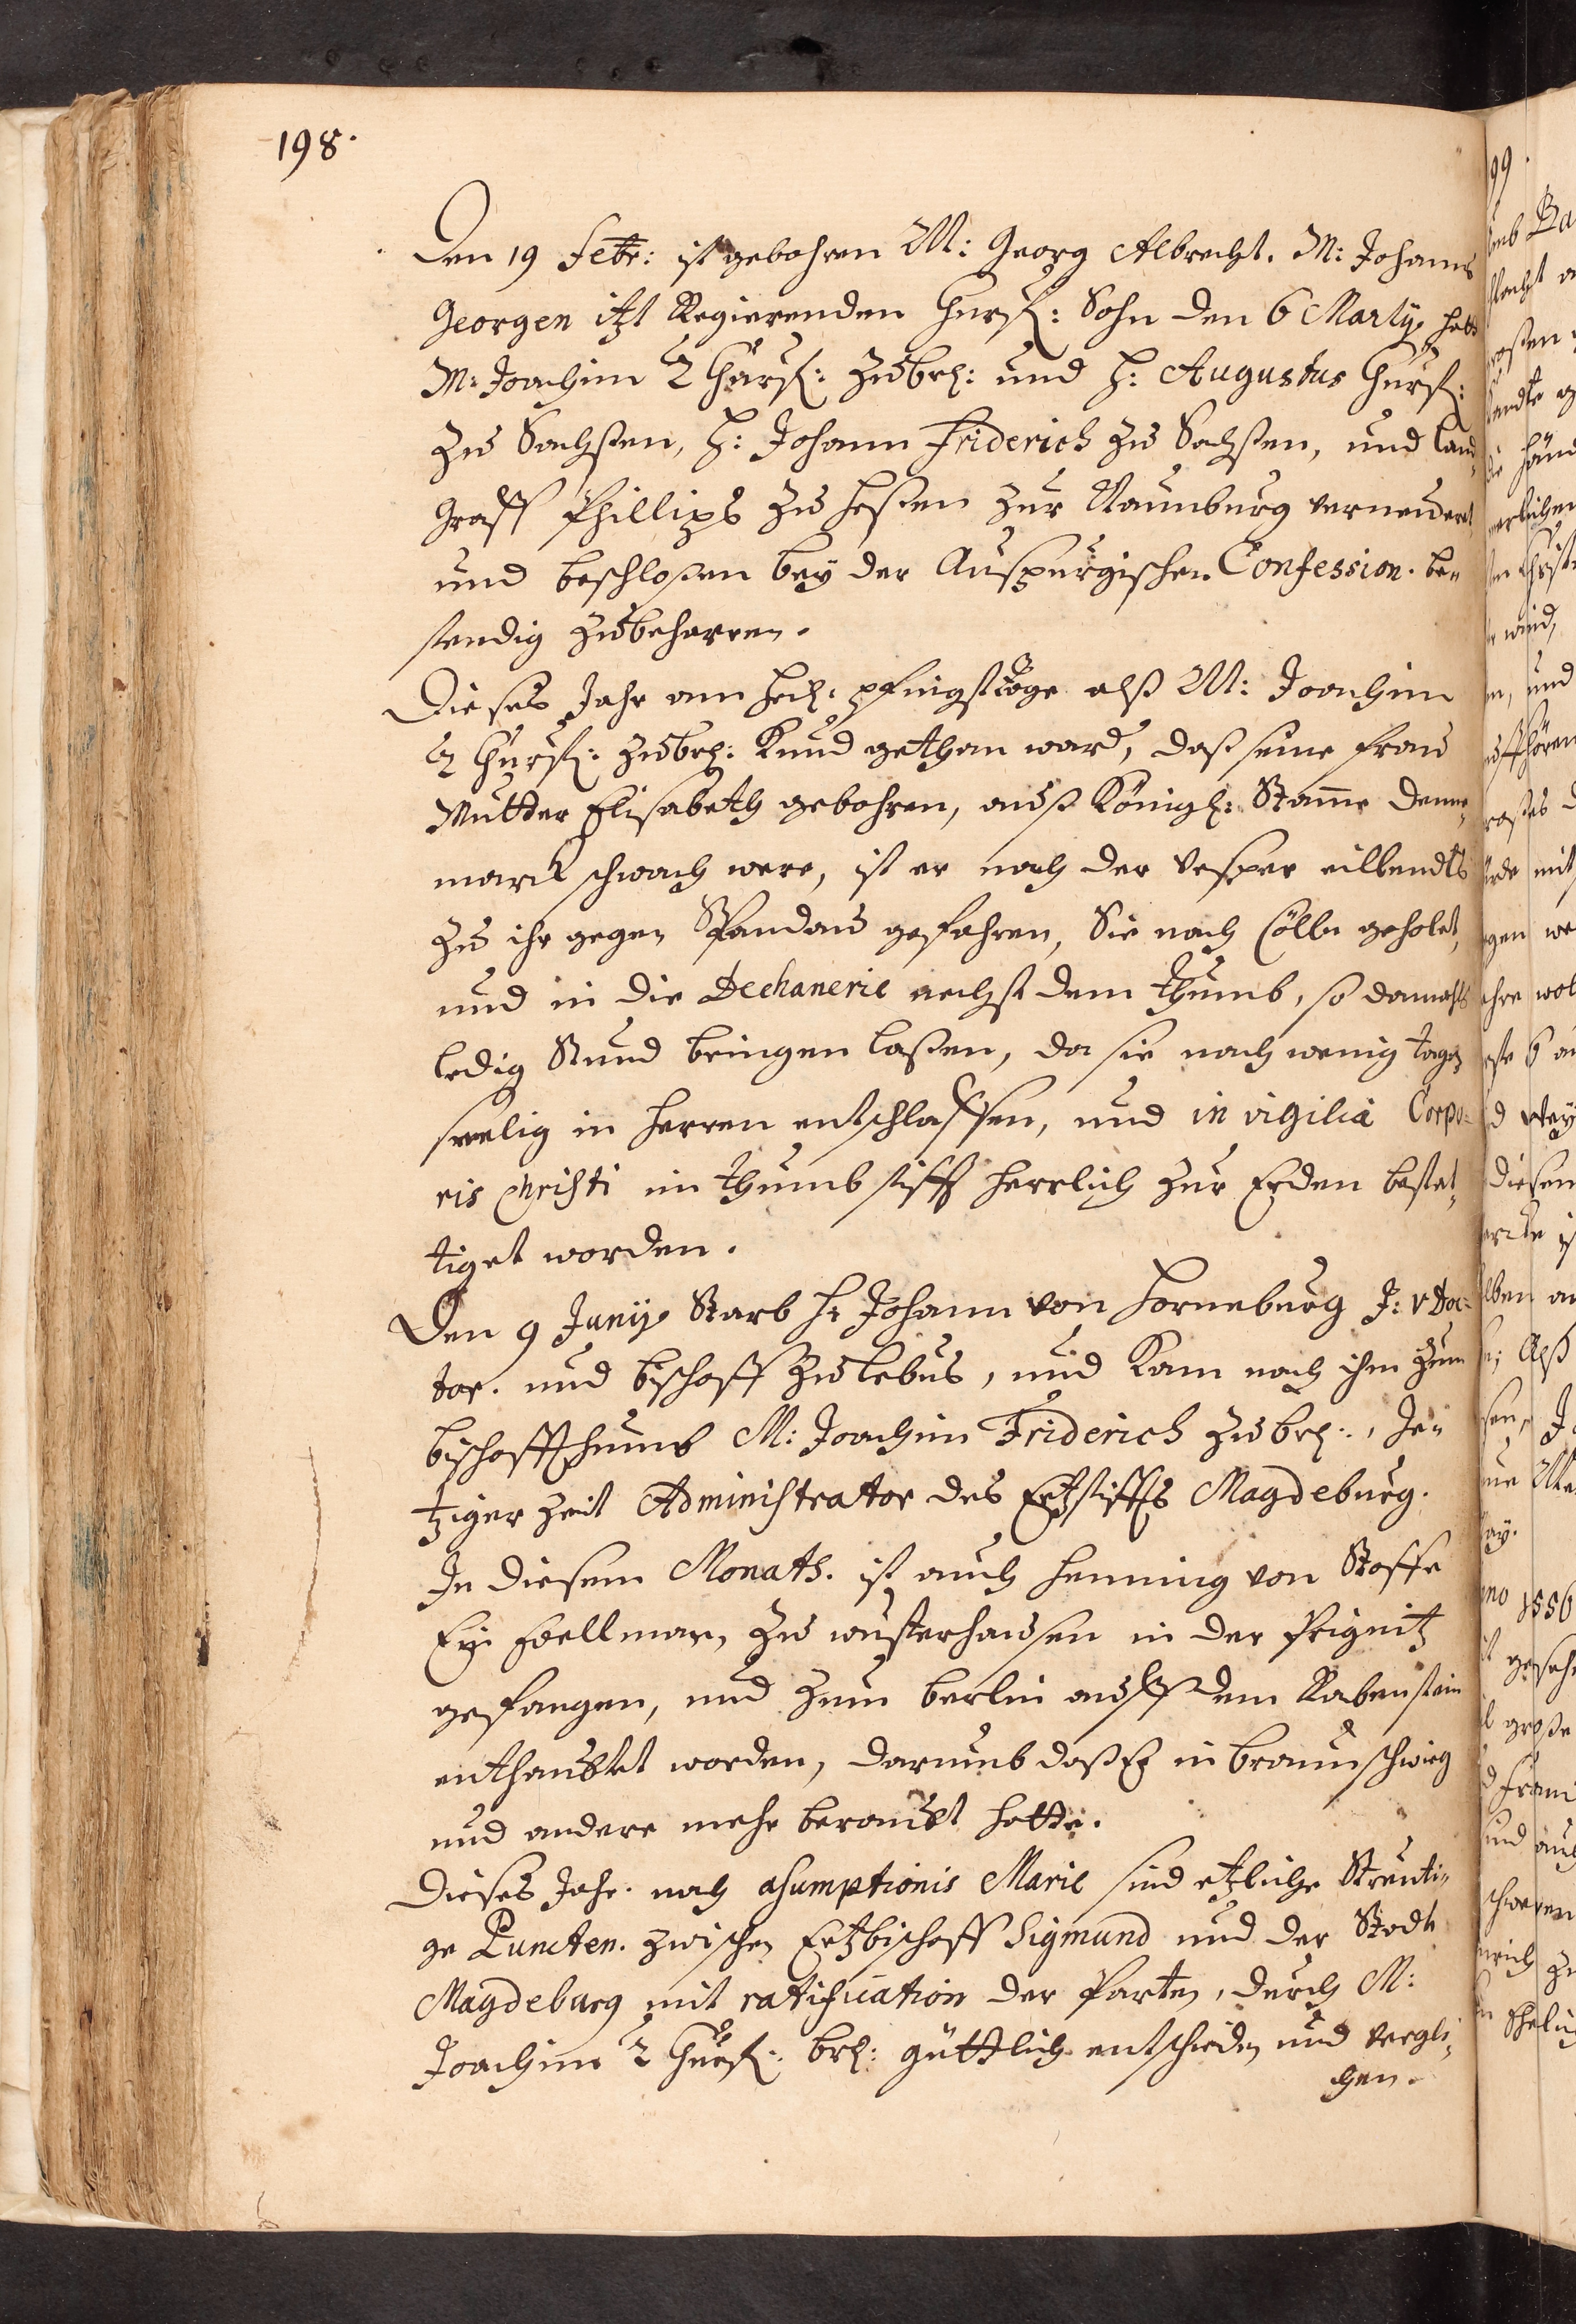 198.
Den 19 Febr: ist gebohren M: Georg Albrecht. M: Johanns
Georgen itzt Regierenden Churf: Sohn den 6 Martÿ hatt
M: Joachim 2 Churf: zu br: und H: Augustus Churf:
zu Sachßen, H: Johann Friderich zu Sachßen, und land¬
graff Phillips zu Heßen zur Naumburg verneüdert
und beschloßen beÿ der Auspurgischen Confession. be¬
stendig zubeharren.
Dieses Jahr am heil: pfingsttage alß M: Joachim
2 Churf: zu br: Kund gethan ward, daß seine Frau
Mutter Elisabeth gebohren, auß Königl: Stame Denne¬
marck schwach were, ist er nach der Vesper eillendts
zu ihr gegen Spandau gefahren, Sie nach Cölln geholet,
und in die Dechanerie nechst dem Thumb, so damahls
ledig Stund bringen laßen, da sie nach wenig tagen
seelig in Herren entschlaffen, und in vigilia Corpo¬
ris Christi im Thumb stifft herrlich zur Erden bestet¬
tiget worden.
Den 9 Junÿ Starb H: Johann von Horneburg J: V Doc¬
tor. und bischoff zu Lebus, und Kam nach ihm zum
bischoffthumb M: Joachim Friderich zu br:, Je¬
tziger Zeit Administrator des Ertzstiffts Magdeburg.
In diesem Monath. ist auch Henning von Stoffe
Ein Edellman, zu wusterhausen in der Prignitz
gefangen, und zum Berlin auff dem Rabenstein
enthaubtet worden, darumb daß Er in braunschwieg
und andere mehr beraubt hatte.
Dieses Jahr. nach asumptionis Marie sind etzliche Streuti¬
ge Puncten. zwischen Ertzbischoff Sigmund und der Stadt
Magdeburg mit ratification der Parten, durch M:
Joachim 2 Churf: br: güttlich entschieden und vergli¬
chen.